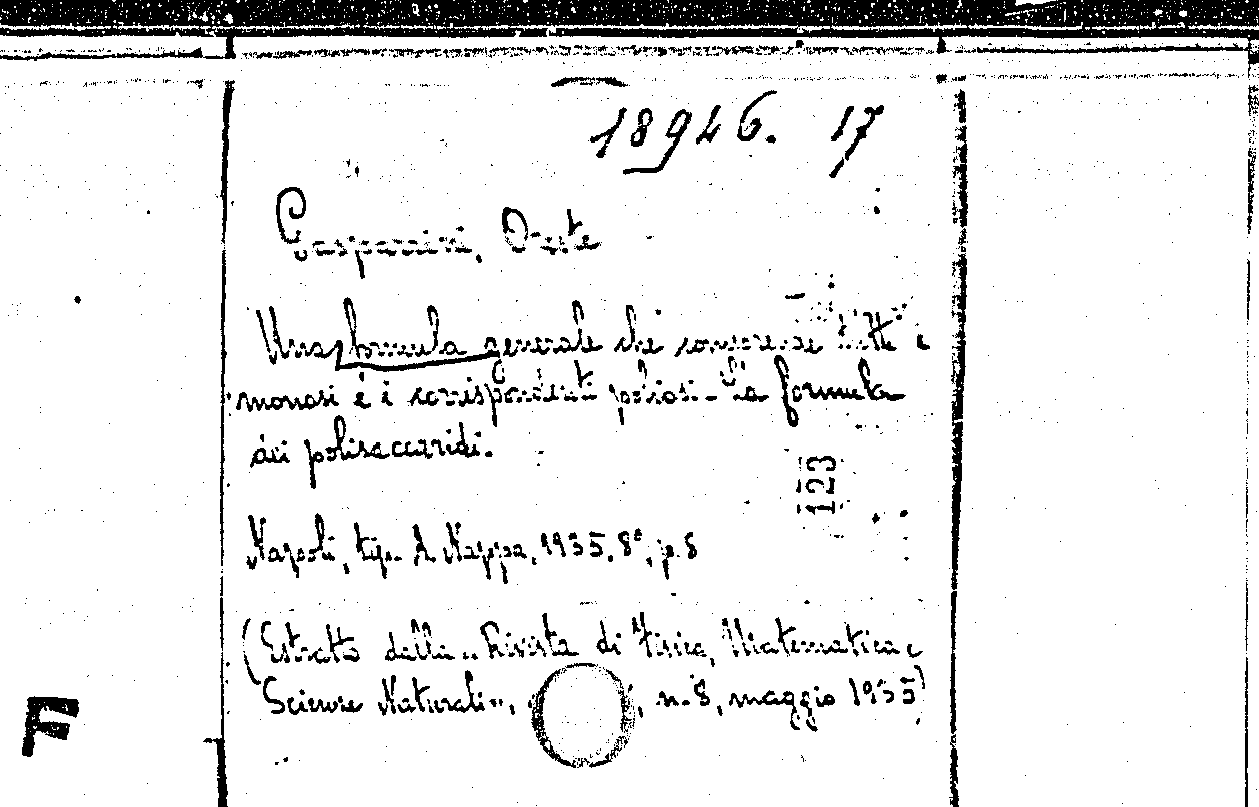 18946. 17
Gasparrini, Oreste
Una formula generale che comprende tutti i
monosi e i corrispondenti poliosi - La formula
dei polisaccaridi.
123
Napoli, tip. A. Nappa, 1935, 8°, p. 8
(Estratto dalla „Rivista di Fisica, Matematica e
Scienze Naturali", , n. 8, maggio 1935)
F